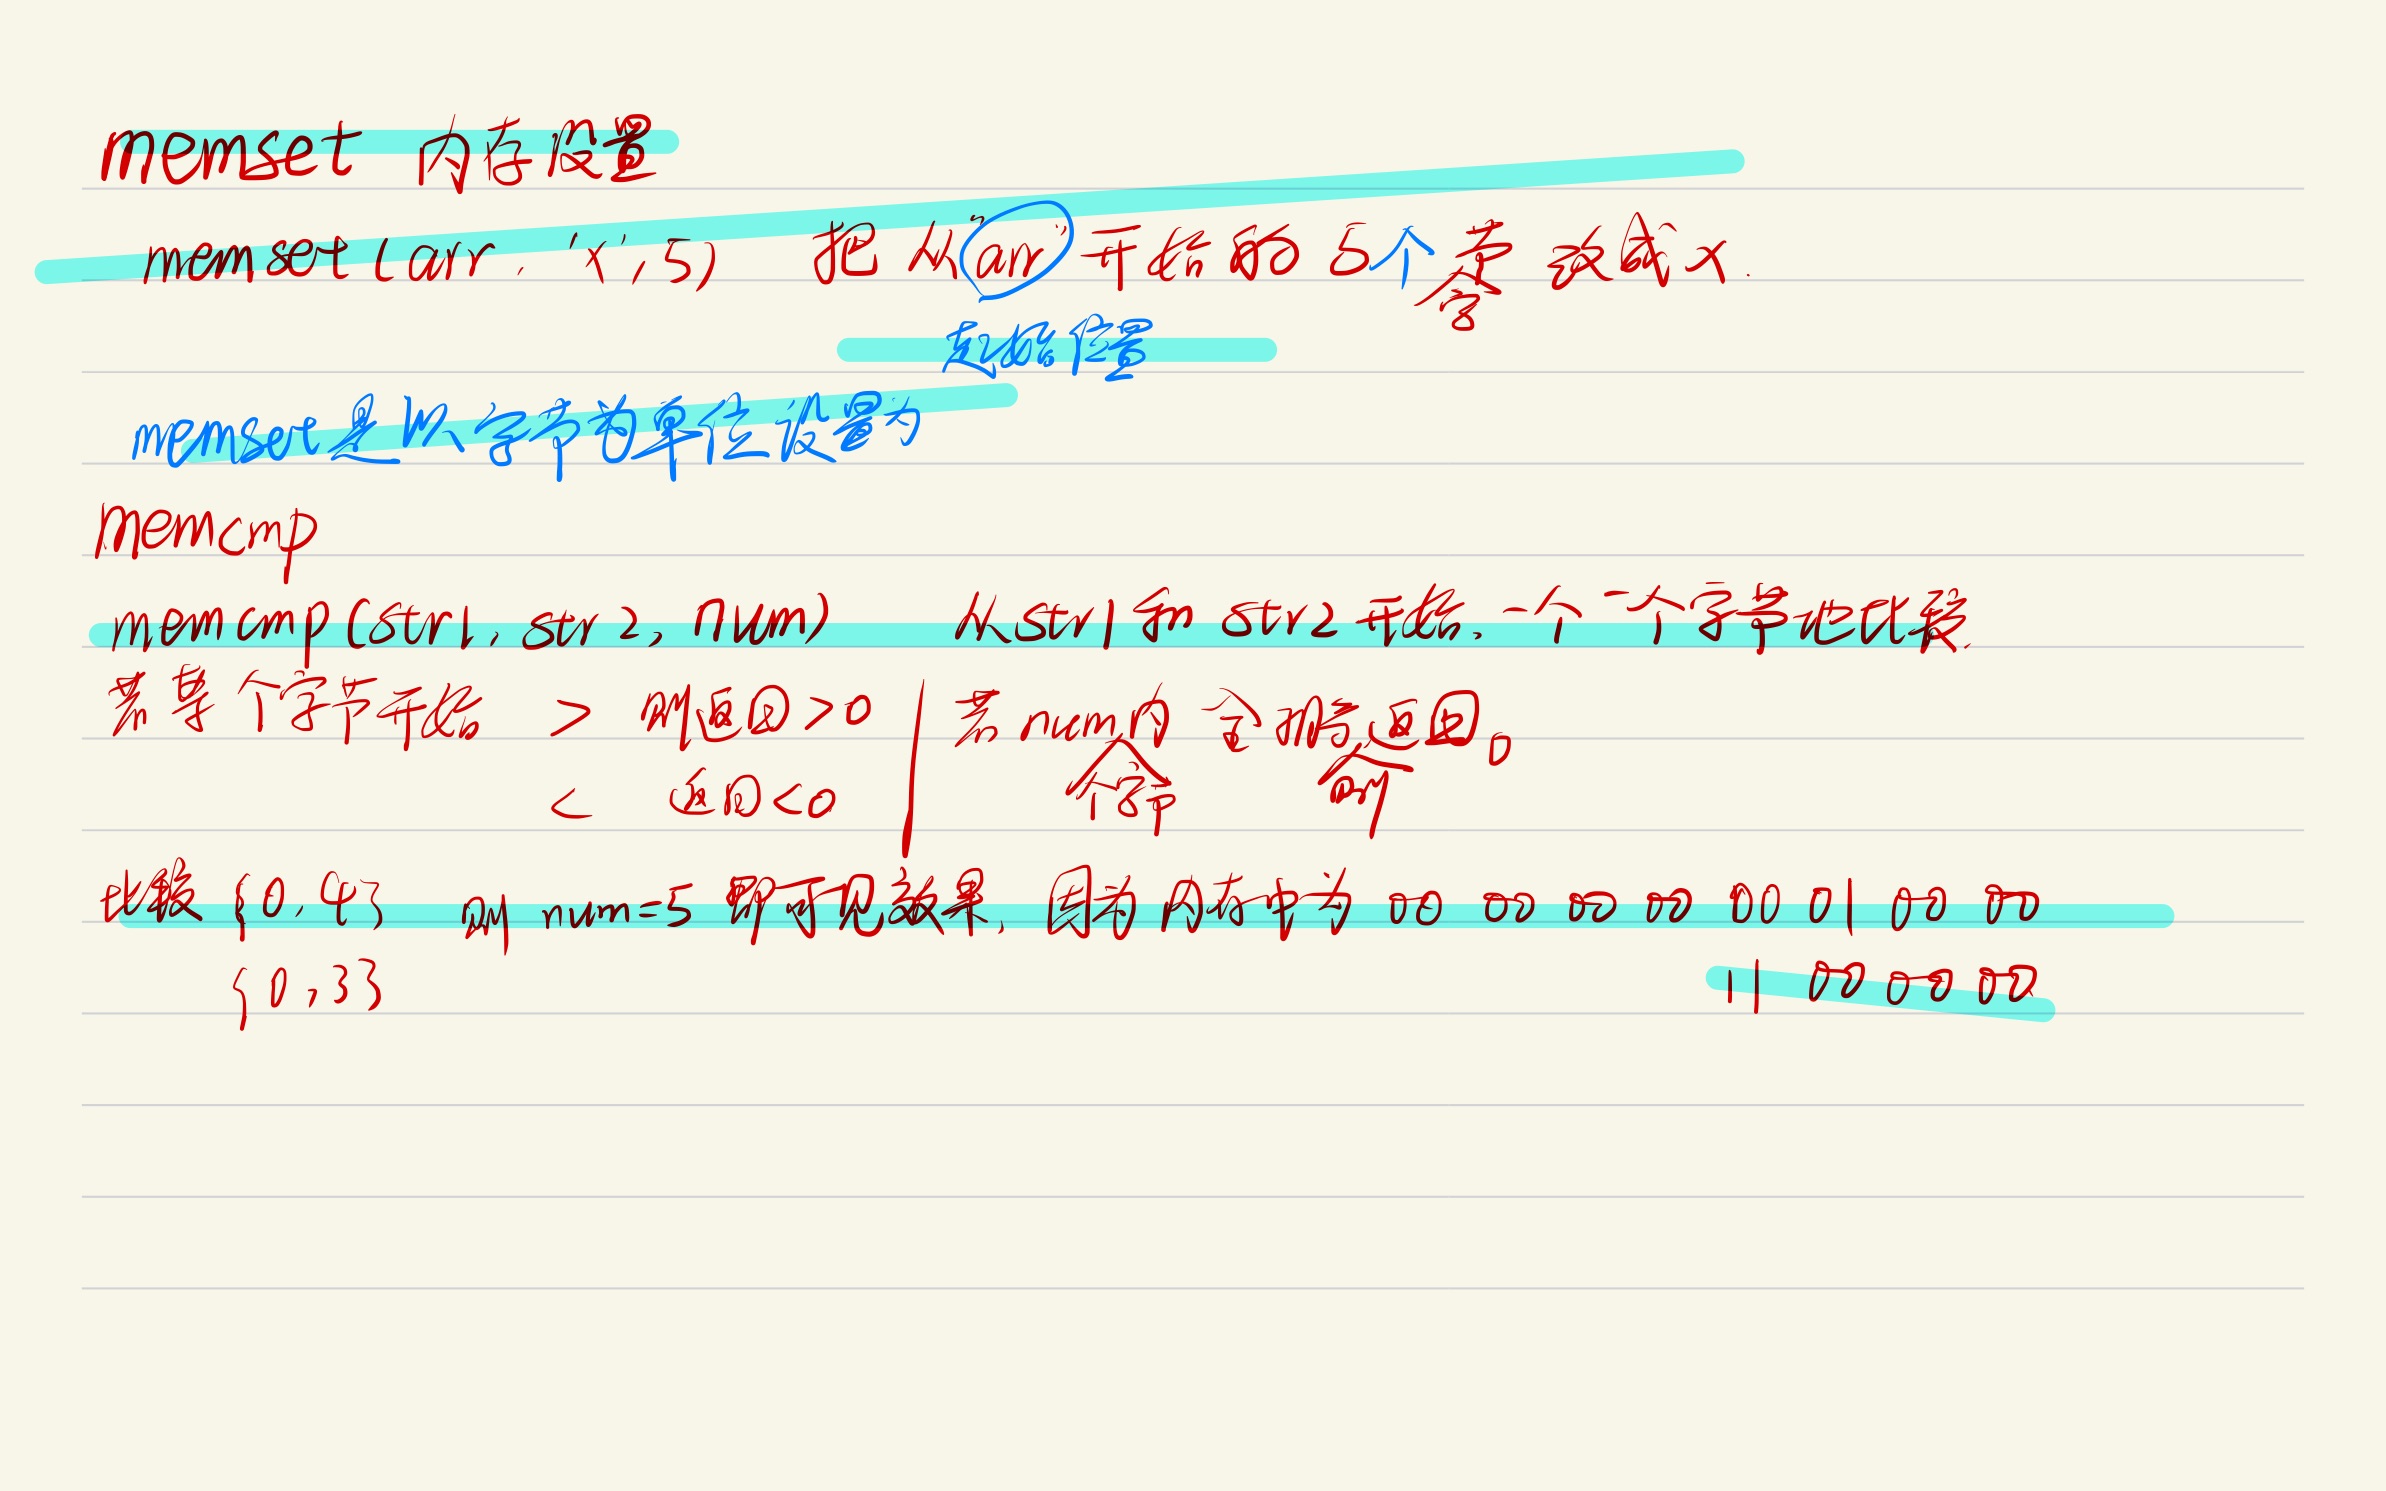 memset 内存设置
memset(arr, 'x', 5) 把从"arr"开始的5个字节改成x.
起始位置
memset是以字节为单位设置为
memcmp
memcmp(str1, str2, num) 从str1和str2开始,一个一个字节地比较.
若某个字节开始 > 则返回>0 若num个字节内全相等则返回0
< 返回<0
比较{0,4} 则num=5即可见效果,因为内存中为 00 00 00 00 00 01 00 00
{0,3} 11 00 00 00